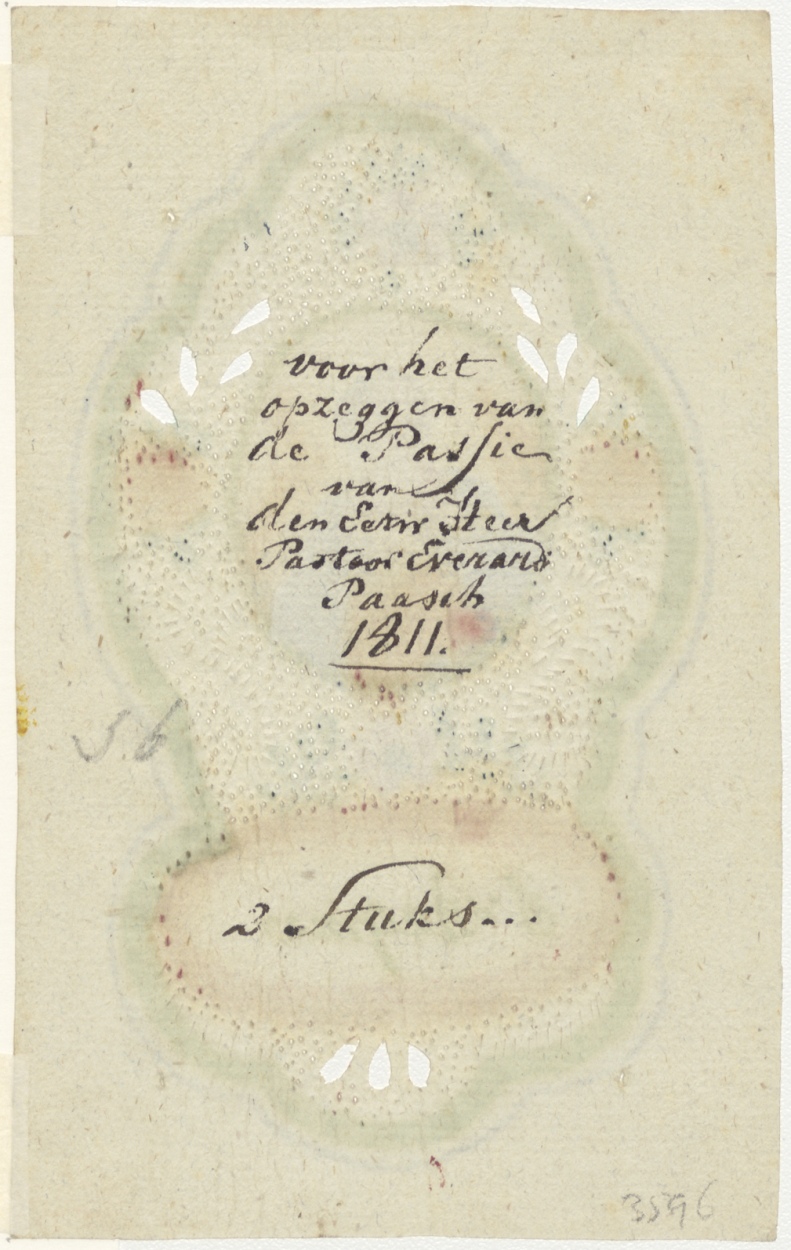 voor het
opzeggen van
de Passie
van
den Eerw Heer
Pastoor Everard
Paasch
1811.
56
2 Stuks...
3596